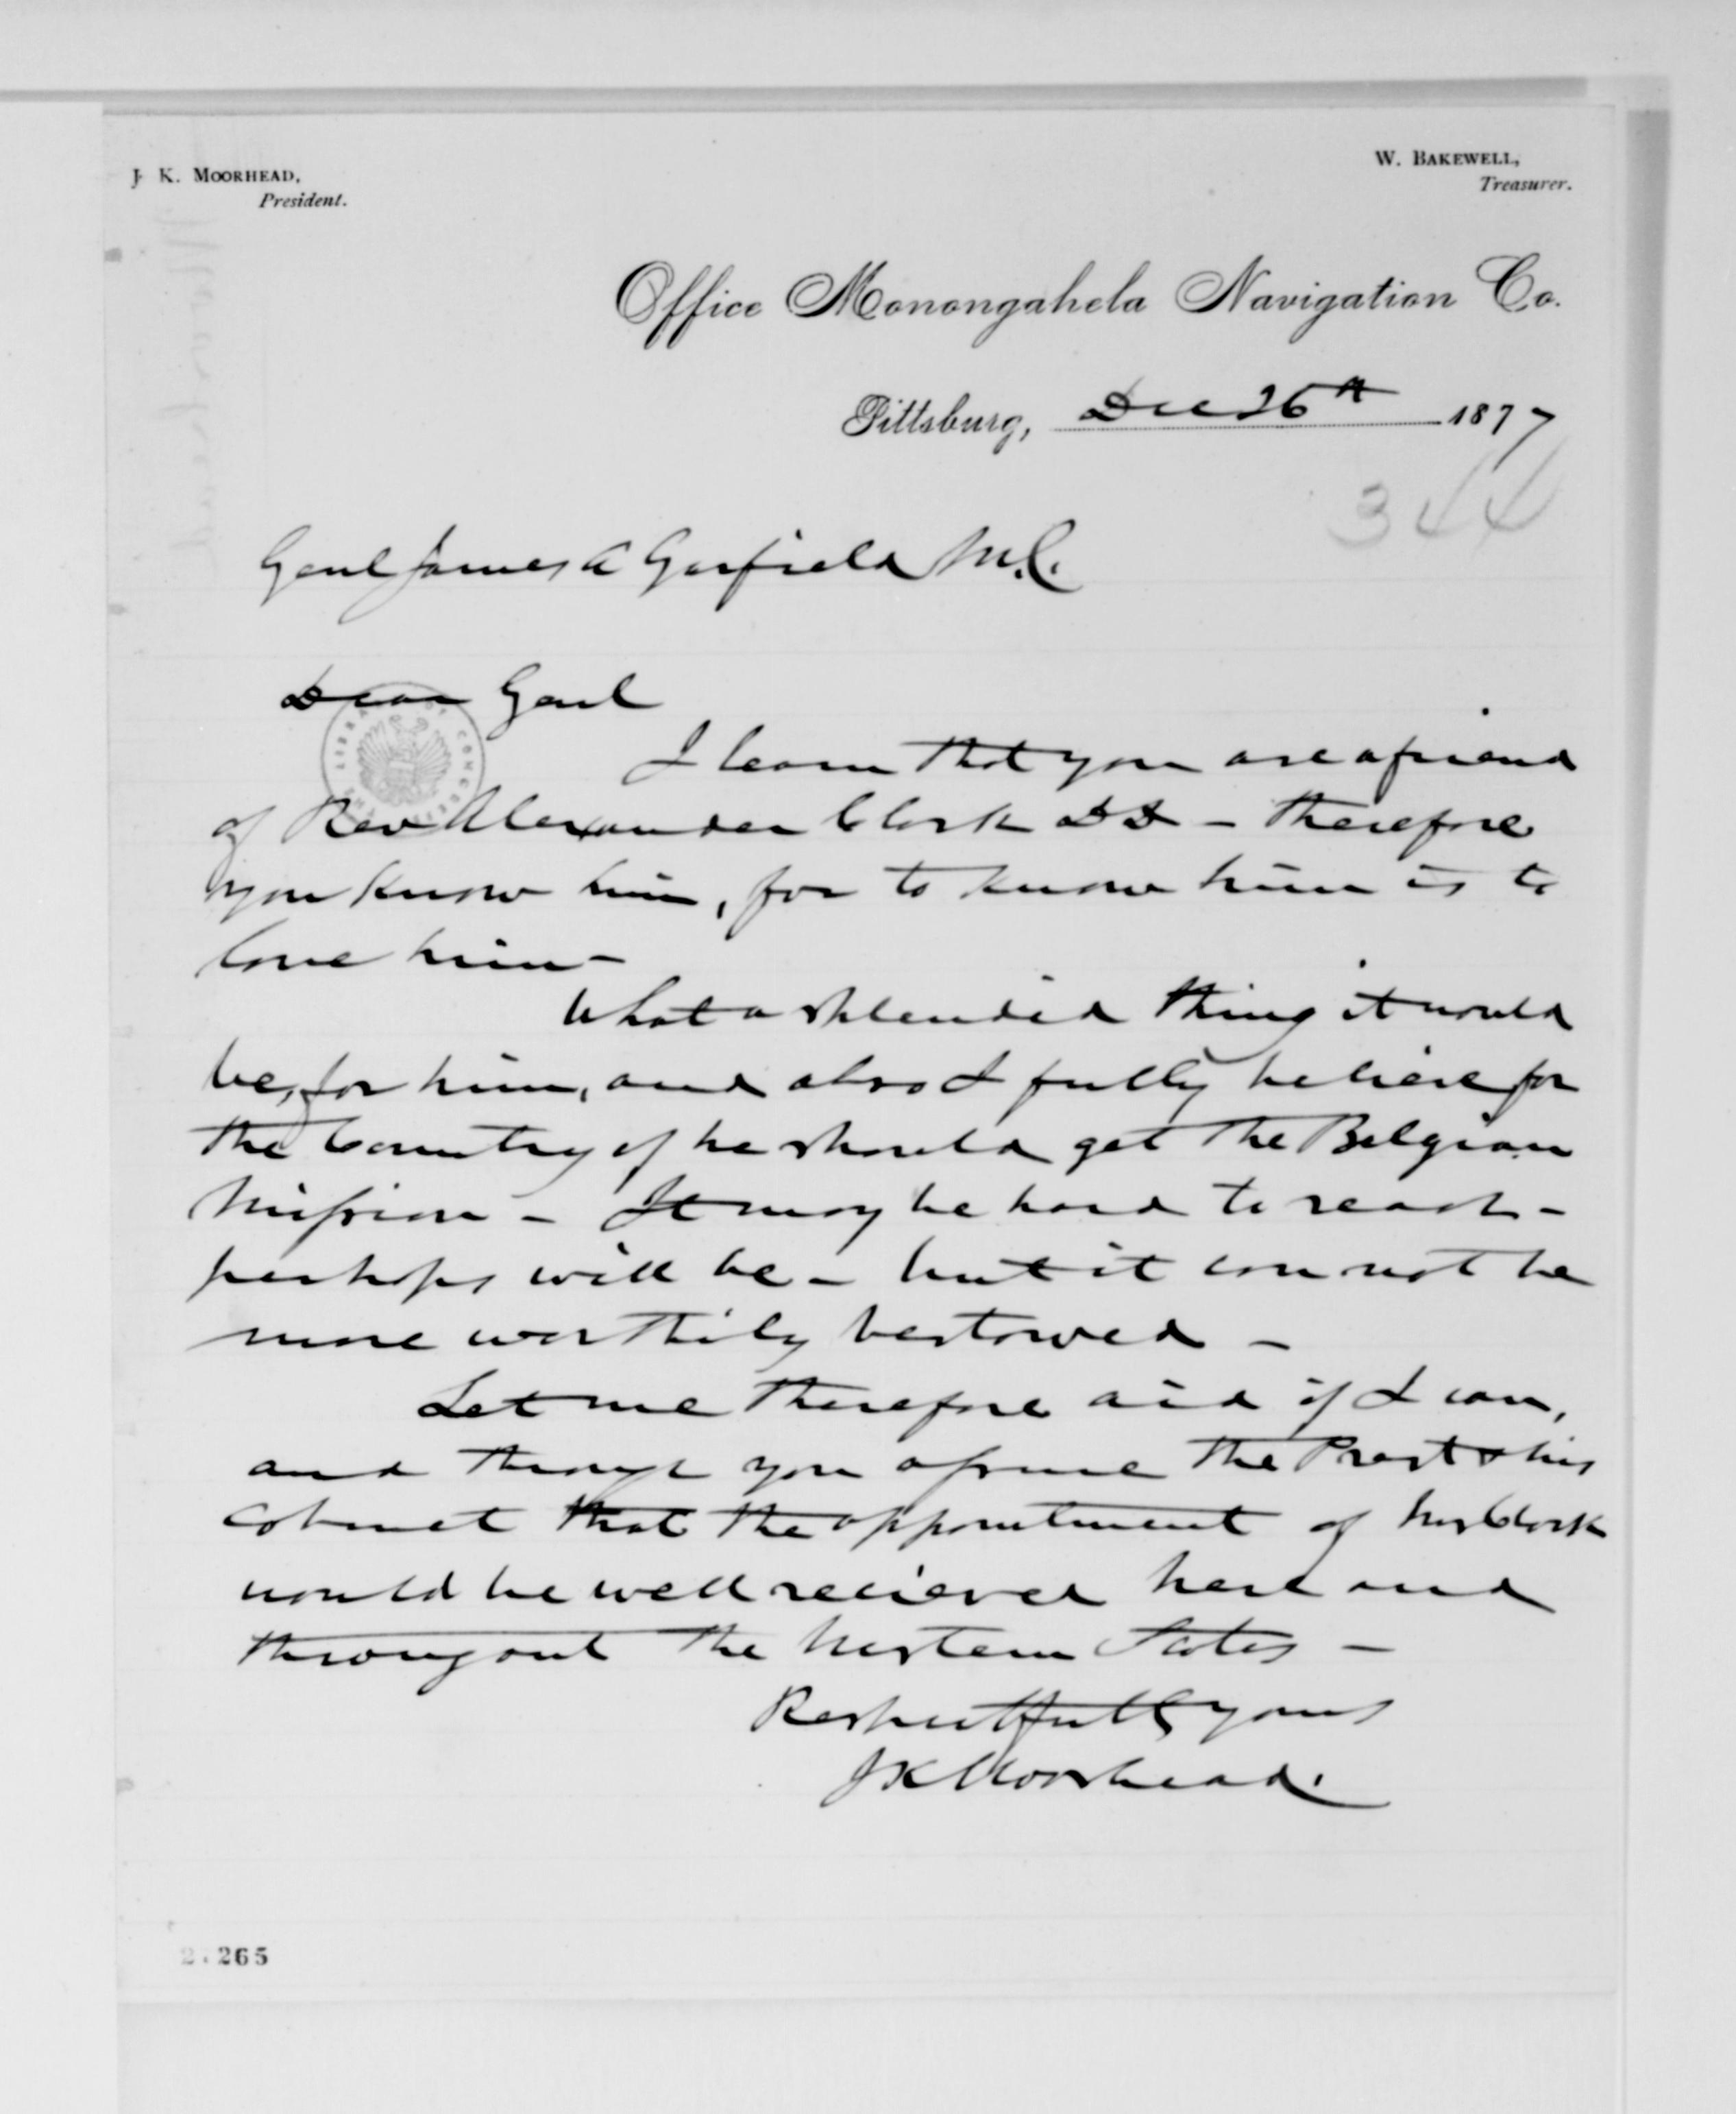 J. K. MOORHEAD,
President.
W. BAKEWELL,
Treasurer.
Office Monongahela Navigation Co.
Pittsburg, Dec 26th 1877
344
Genl James A Garfield M.C.
Dear Genl
I learn that you are a friend
of Rev Alexander Clark DD - therefore
you know him, for to know him is to
love him -
What a splendid thing it would
be, for him, and also I fully believe for
the Country if he should get the Belgian
Mission - It may be hard to reach -
perhaps will be - but it can not be
more worthily bestowed -
Let me therefore aid if I can,
and through you assure the Prest & his
cabinet that the appointment of Mr Clark
would be well recieved here and
througout the Western States -
Respectfully yours
J K Moorhead.
LIBRARY OF CONGRESS
2.265